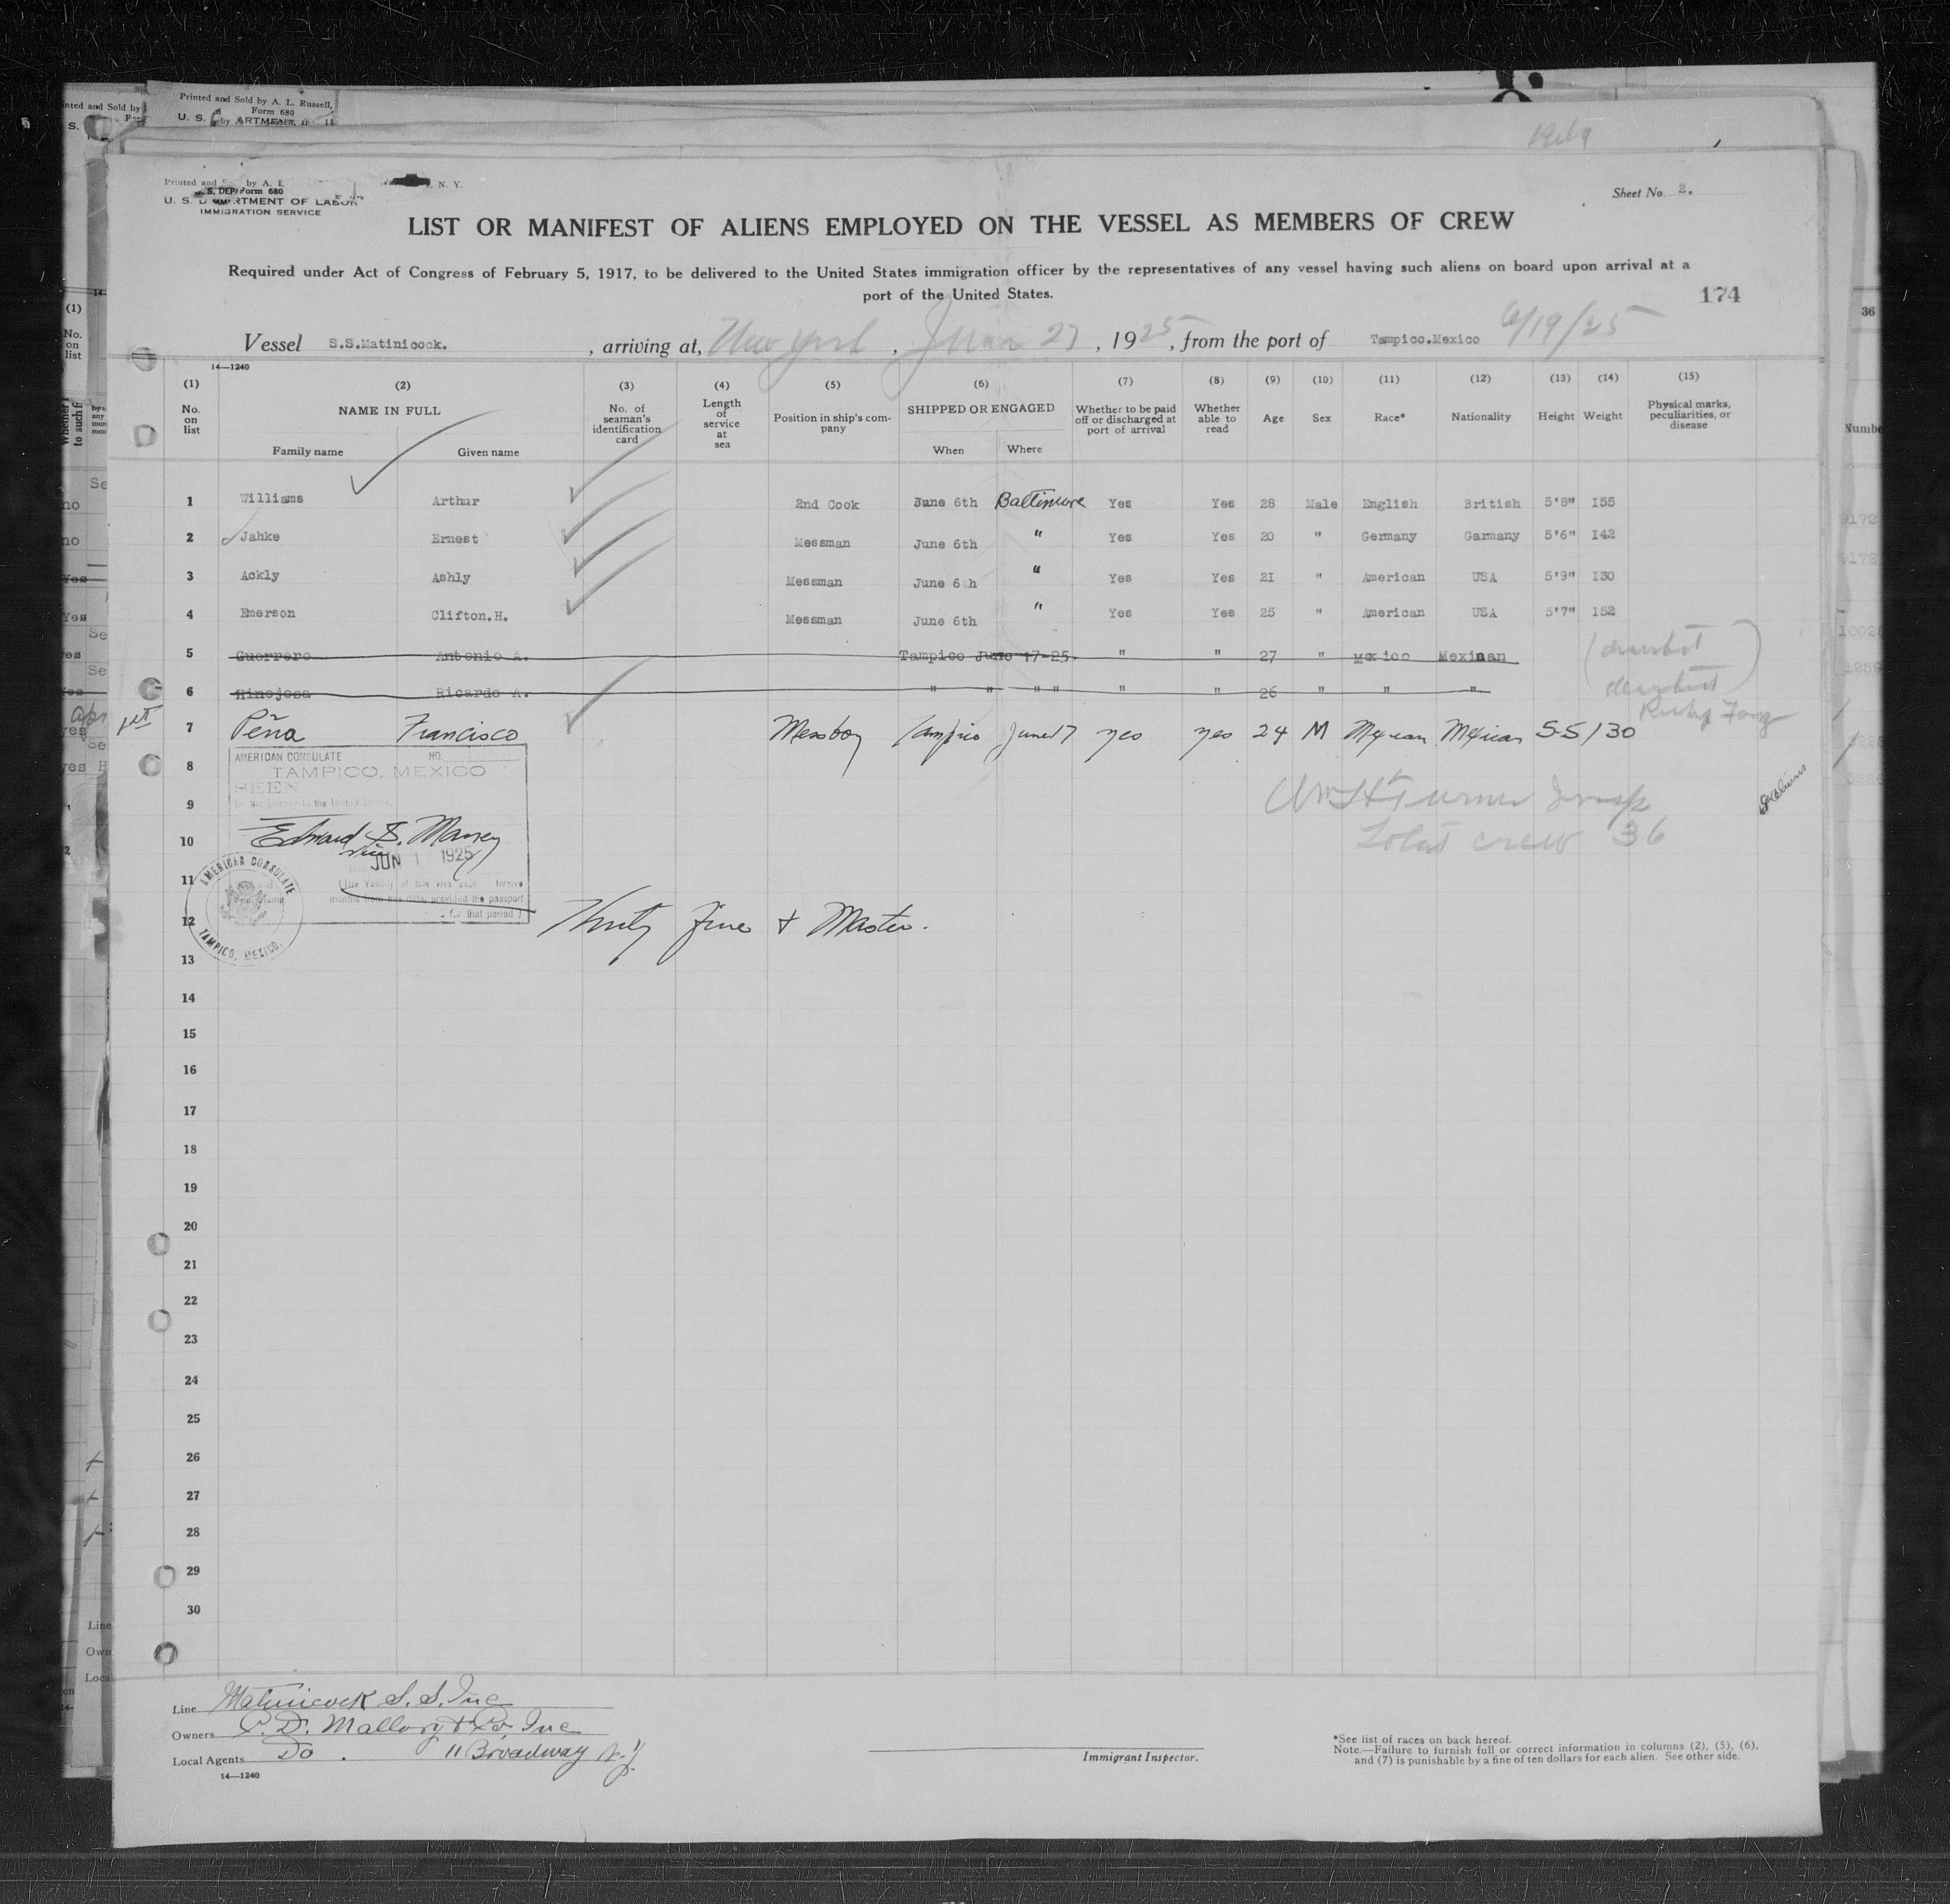 Printed and Sold by A. L. Russell,
Form 680
Printed and
by A.
N. Y.
S. DEP
Form 680
U. S. D
RTMENT OF LABOR
IMMIGRATION SERVICE
Sheet No. 2.
LIST OR MANIFEST OF ALIENS EMPLOYED ON THE VESSEL AS MEMBERS OF CREW
Required under Act of Congress of February 5, 1917, to be delivered to the United States immigration officer by the representatives of any vessel having such aliens on board upon arrival at a
port of the United States.
174
Vessel S.S.Matinicock. , arriving at, New York , June 27 , 1925 , from the port of Tampico.Mexico 6/19/25
14—1240
(1) (2) (3) (4) (5) (6) (7) (8) (9) (10) (11) (12) (13) (14) (15)
No. on list NAME IN FULL No. of seaman's identification card Length of service at sea Position in ship's company SHIPPED OR ENGAGED Whether to be paid off or discharged at port of arrival Whether able to read Age Sex Race* Nationality Height Weight Physical marks, peculiarities, or disease
Family name Given name When Where
1 Williams Arthur 2nd Cook June 6th Baltimore Yes Yes 28 Male English British 5'8" I55
2 Jahke Ernest Messman June 6th " Yes Yes 20 " Germany Garmany 5'6" I42
3 Ackly Ashly Messman June 6th " Yes Yes 2I " American USA 5'9" I30
4 Emerson Clifton.H. Messman June 6th " Yes Yes 25 " American USA 5'7" I52
5 Guerrero Antonio A. Tampico June 17-25. " " 27 " Mexico Mexinan
6 Hinojosa Ricardo A. " " " " " " 26 " " "
7 Peña Francisco Messboy Tampico June 17 yes yes 24 M Mexican Mexican 5-5 130
8
AMERICAN CONSULATE NO.
TAMPICO, MEXICO
SEEN
9
Wm H Turner Insp
Total crew 36
10
Edward S. Maney
JUN 1 1925
11
(The Validity of this visa twelve
months from this date, provided the passport
for that period)
AMERICAN CONSULATE
TAMPICO, MEXICO.
12
Thirty five & Master.
13
14
15
16
17
18
19
20
21
22
23
24
25
26
27
28
29
30
Line Matinicock S.S. Inc
Owners C. D. Mallory & Co. Inc
Local Agents Do. 11 Broadway N.Y.
14—1240
Immigrant Inspector.
*See list of races on back hereof.
Note.—Failure to furnish full or correct information in columns (2), (5), (6),
and (7) is punishable by a fine of ten dollars for each alien. See other side.